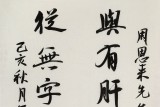 周恩来先
與有肝
從無字
乙亥秋月